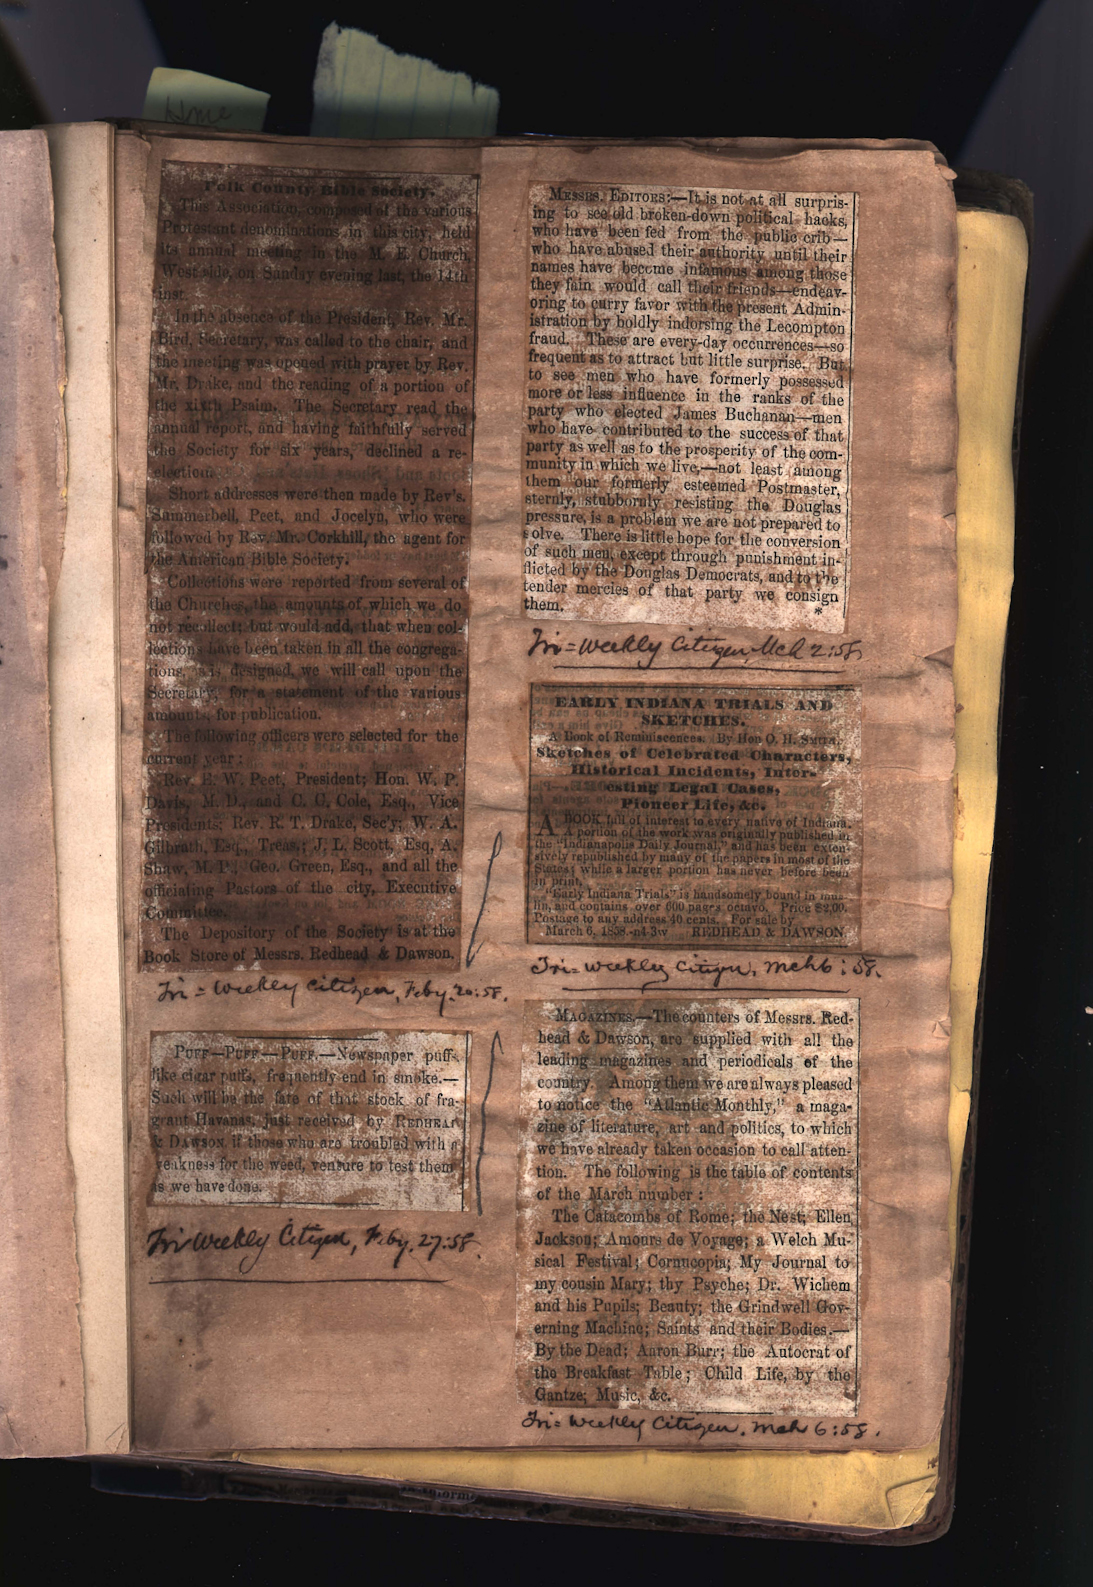 Home
Polk County Bible Society.
This Association, composed of the various
Protestant denominations in this city, held
its annual meeting in the M. E. Church,
West side, on Sunday evening last, the 14th
inst.
In the absence of the President, Rev. Mr.
Bird, Secretary, was called to the chair, and
the meeting was opened with prayer by Rev.
Mr. Drake, and the reading of a portion of
the xixth Psalm. The Secretary read the
annual report, and having faithfully served
the Society for six years, declined a re-
election.
Short addresses were then made by Rev's.
Summerbell, Peet, and Jocelyn, who were
followed by Rev. Mr. Corkhill, the agent for
the American Bible Society.
Collections were reported from several of
the Churches, the amounts of which we do
not recollect; but would add, that when col-
lections have been taken in all the congrega-
tions, as is designed, we will call upon the
Secretary, for a statement of the various
amounts, for publication.
The following officers were selected for the
current year:
Rev. E. W. Peet, President; Hon. W. P.
Davis, M. D., and C. C. Cole, Esq., Vice
Presidents; Rev. R. T. Drake, Sec'y; W. A.
Gilbrath, Esq., Treas.; J. L. Scott, Esq, A.
Shaw, M. P.; Geo. Green, Esq., and all the
officiating Pastors of the city, Executive
Committee.
The Depository of the Society is at the
Book Store of Messrs. Redhead & Dawson.
Tri=Weekly Citizen, Feby. 20:58.
PUFF—PUFF—PUFF.—Newspaper puffs,
like cigar puffs, frequently end in smoke.—
Such will be the fate of that stock of fra-
grant Havanas, just received by REDHEAD
& DAWSON, if those who are troubled with a
weakness for the weed, venture to test them
as we have done.
Tri Weekly Citizen, Feby. 27:58.
MESSRS. EDITORS:—It is not at all surpris-
ing to see old broken-down political hacks,
who have been fed from the public crib—
who have abused their authority until their
names have become infamous among those
they fain would call their friends—endeav-
oring to curry favor with the present Admin-
istration by boldly indorsing the Lecompton
fraud. These are every-day occurrences—so
frequent as to attract but little surprise. But
to see men who have formerly possessed
more or less influence in the ranks of the
party who elected James Buchanan—men
who have contributed to the success of that
party as well as to the prosperity of the com-
munity in which we live,—not least among
them our formerly esteemed Postmaster,
sternly, stubbornly resisting the Douglas
pressure, is a problem we are not prepared to
solve. There is little hope for the conversion
of such men, except through punishment in-
flicted by the Douglas Democrats, and to the
tender mercies of that party we consign
them. *
Tri=Weekly Citizen, Mch 2:58.
EARLY INDIANA TRIALS AND
SKETCHES.
A Book of Reminiscences. By Hon O. H. SMITH.
Sketches of Celebrated Characters,
Historical Incidents, Inter-
esting Legal Cases,
Pioneer Life, &c.
A BOOK full of interest to every native of Indiana.
A portion of the work was originally published in
the "Indianapolis Daily Journal," and has been exten-
sively republished by many of the papers in most of the
States; while a larger portion has never before been
in print.
"Early Indiana Trials" is handsomely bound in mus-
lin, and contains over 600 pages octavo. Price $2,00.
Postage to any address 40 cents. For sale by
March 6, 1858.-n4-3w REDHEAD & DAWSON.
Tri=Weekly Citizen, Mch 6:58.
MAGAZINES.—The counters of Messrs. Red-
head & Dawson, are supplied with all the
leading magazines and periodicals of the
country. Among them we are always pleased
to notice the "Atlantic Monthly," a maga-
zine of literature, art and politics, to which
we have already taken occasion to call atten-
tion. The following is the table of contents
of the March number:
The Catacombs of Rome; the Nest; Ellen
Jackson; Amours de Voyage; a Welch Mu-
sical Festival; Cornucopia; My Journal to
my cousin Mary; thy Psyche; Dr. Wichem
and his Pupils; Beauty; the Grindwell Gov-
erning Machine; Saints and their Bodies.—
By the Dead; Aaron Burr; the Autocrat of
the Breakfast Table; Child Life, by the
Gantze; Music, &c.
Tri=Weekly Citizen. Mch 6:58.